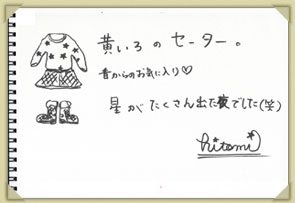 黄いろのセーター。
昔からのお気に入り♡
星がたくさん出た夜でした(笑)
hitomi